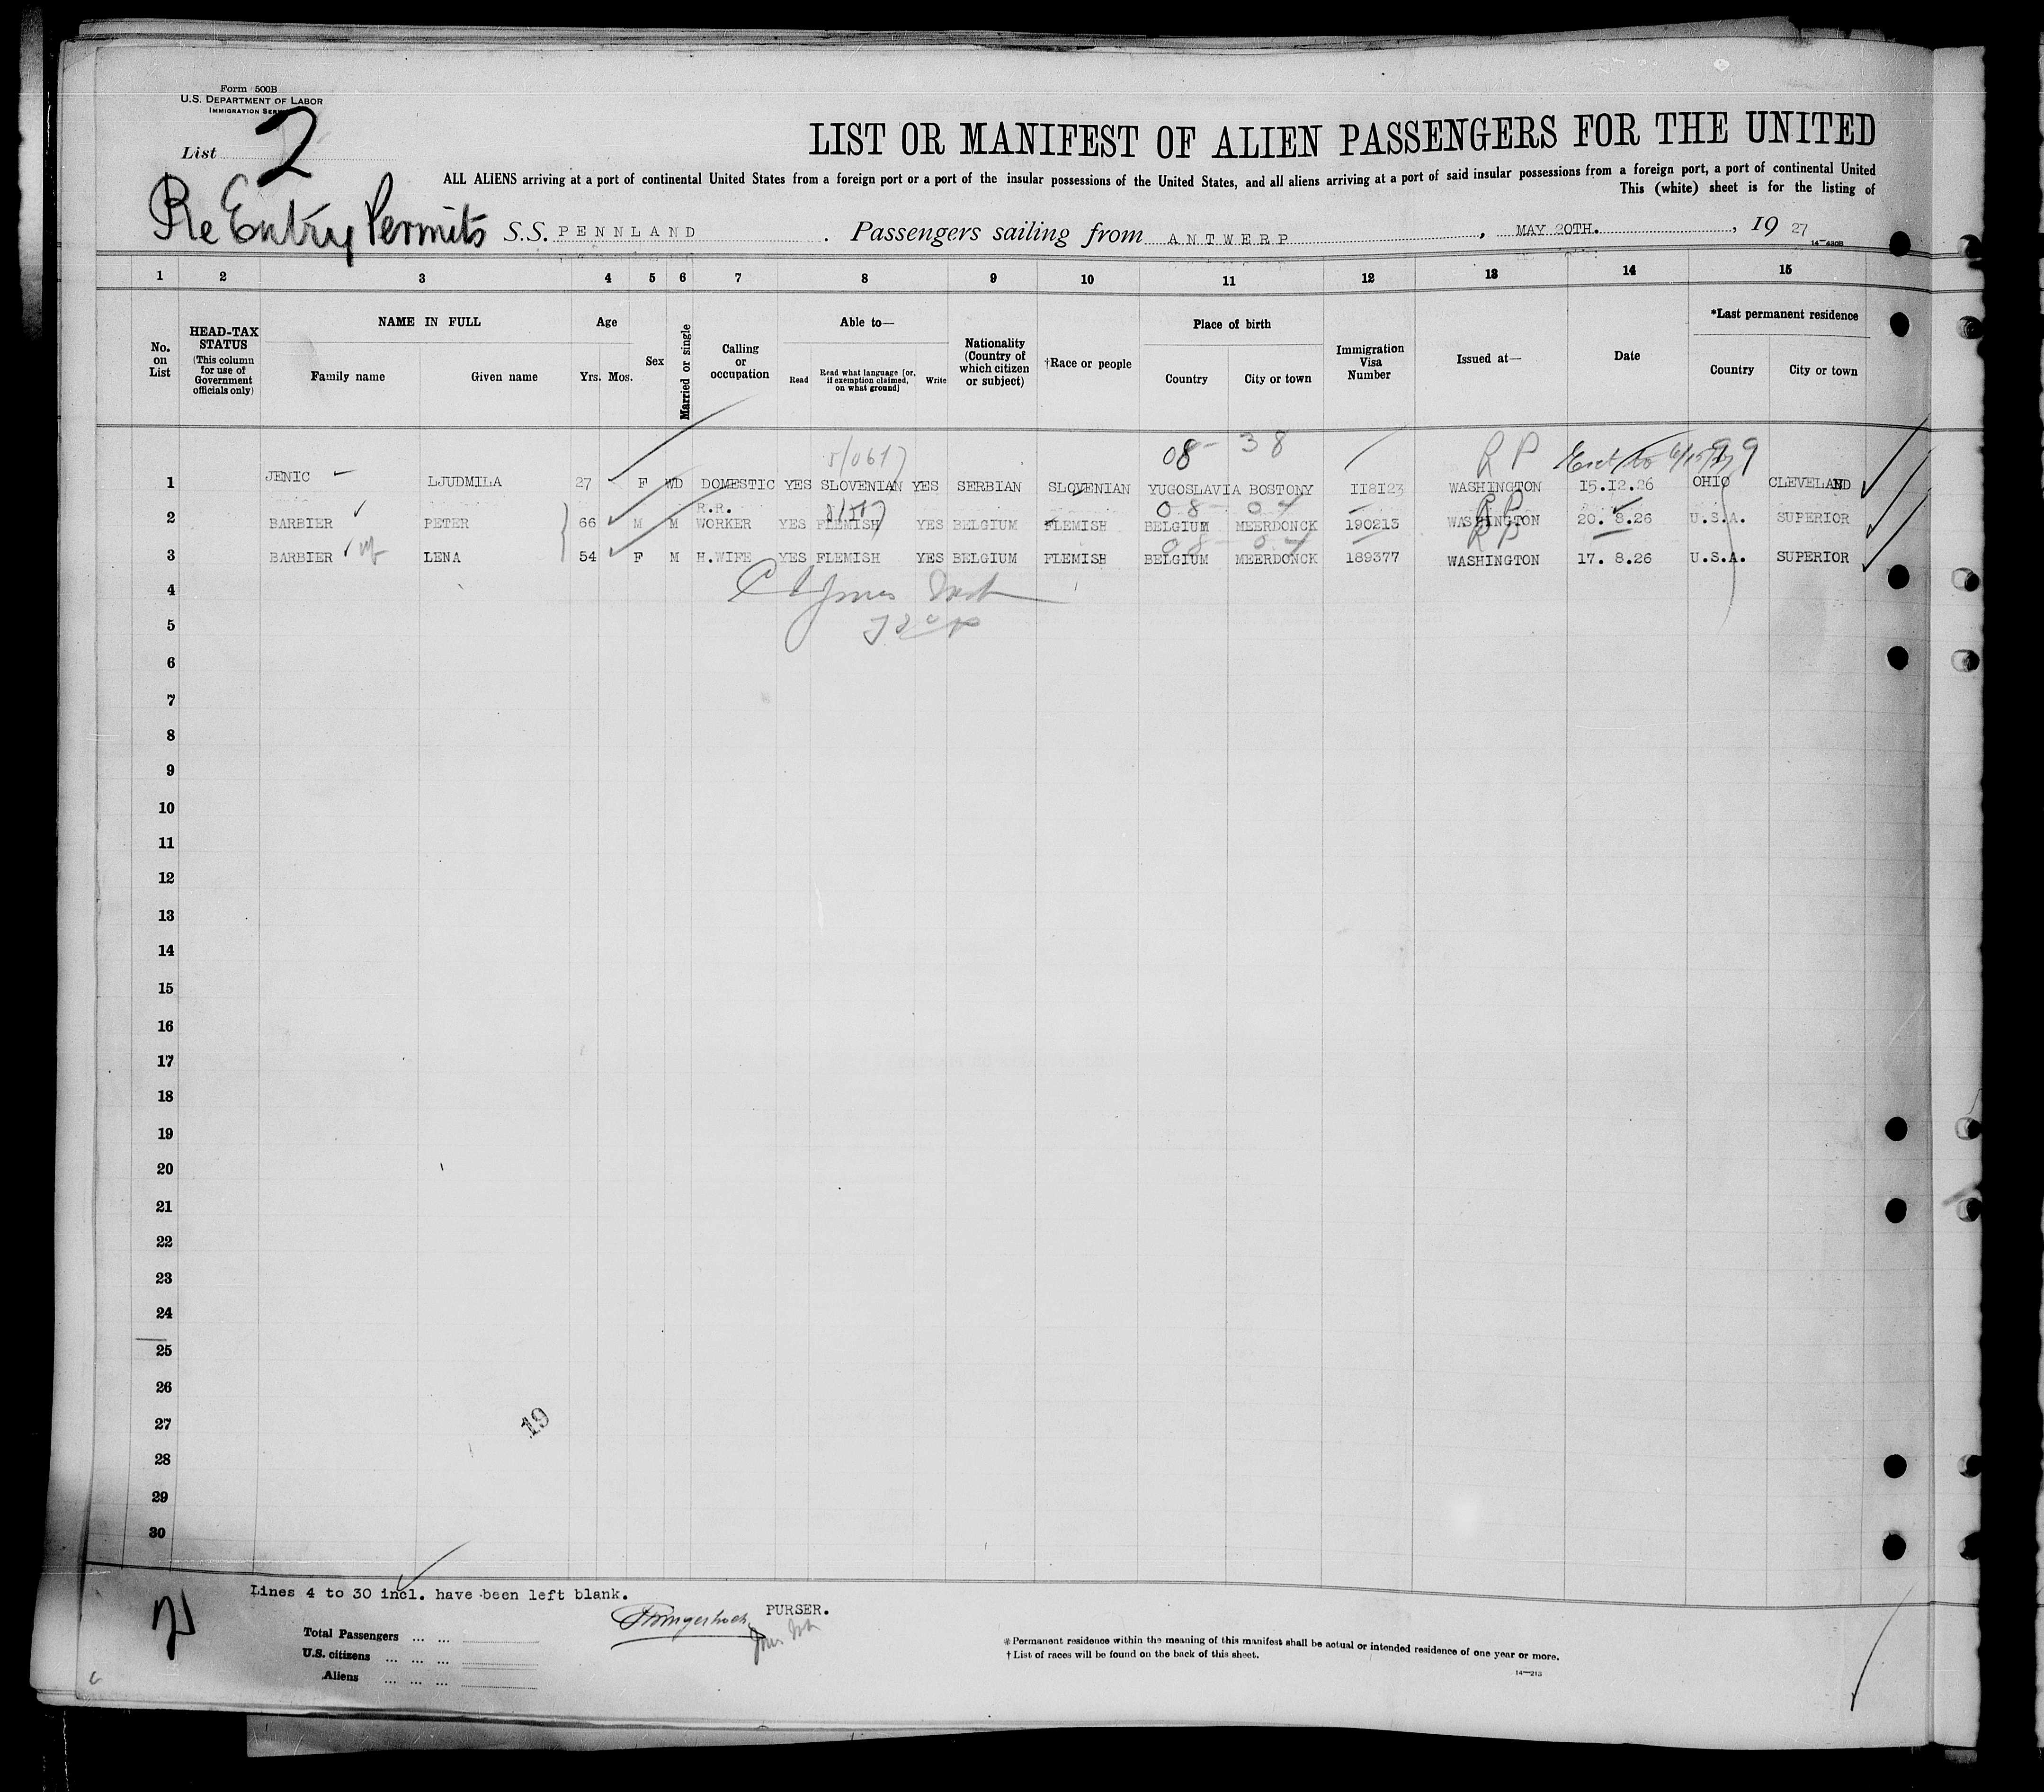 Form 500B
U.S. DEPARTMENT OF LABOR
IMMIGRATION
List 2
LIST OR MANIFEST OF ALIEN PASSENGERS FOR THE UNITED
ALL ALIENS arriving at a port of continental United States from a foreign port or a port of the insular possessions of the United States, and all aliens arriving at a port of said insular possessions from a foreign port, a port of continental United
This (white) sheet is for the listing of
Re Entry Permits S.S. PENNLAND. Passengers sailing from ANTWERP, MAY 20TH., 19 27
14—430B
1 2 3 4 5 6 7 8 9 10 11 12 13 14 15
No. on List
HEAD-TAX STATUS (This column for use of Government officials only)
NAME IN FULL
Family name Given name
Age
Yrs. Mos.
Sex
Married or single
Calling or occupation
Able to—
Read
Read what language [or, if exemption claimed, on what ground]
Write
Nationality (Country of which citizen or subject)
†Race or people
Place of birth
Country City or town
Immigration Visa Number
Issued at—
Date
*Last permanent residence
Country City or town
08 - 38 R P
1 JENIC LJUDMILA 27 F WD DOMESTIC YES SLOVENIAN YES SERBIAN SLOVENIAN YUGOSLAVIA BOSTONY 118123 WASHINGTON 15.12.26 OHIO CLEVELAND
08 - 04 R P
2 BARBIER PETER 66 M M R.R. WORKER YES FLEMISH YES BELGIUM FLEMISH BELGIUM MEERDONCK 190213 WASHINGTON 20. 8.26 U.S.A. SUPERIOR
08 - 04 R P
3 BARBIER wf LENA 54 F M H.WIFE YES FLEMISH YES BELGIUM FLEMISH BELGIUM MEERDONCK 189377 WASHINGTON 17. 8.26 U.S.A. SUPERIOR
4
5
6
7
8
9
10
11
12
13
14
15
16
17
18
19
20
21
22
23
24
25
26
27
28
29
30
19
Lines 4 to 30 incl. have been left blank.
PURSER.
Total Passengers ... ...
U.S. citizens ... ... ...
Aliens ... ... ...
*Permanent residence within the meaning of this manifest shall be actual or intended residence of one year or more.
†List of races will be found on the back of this sheet.
14—213